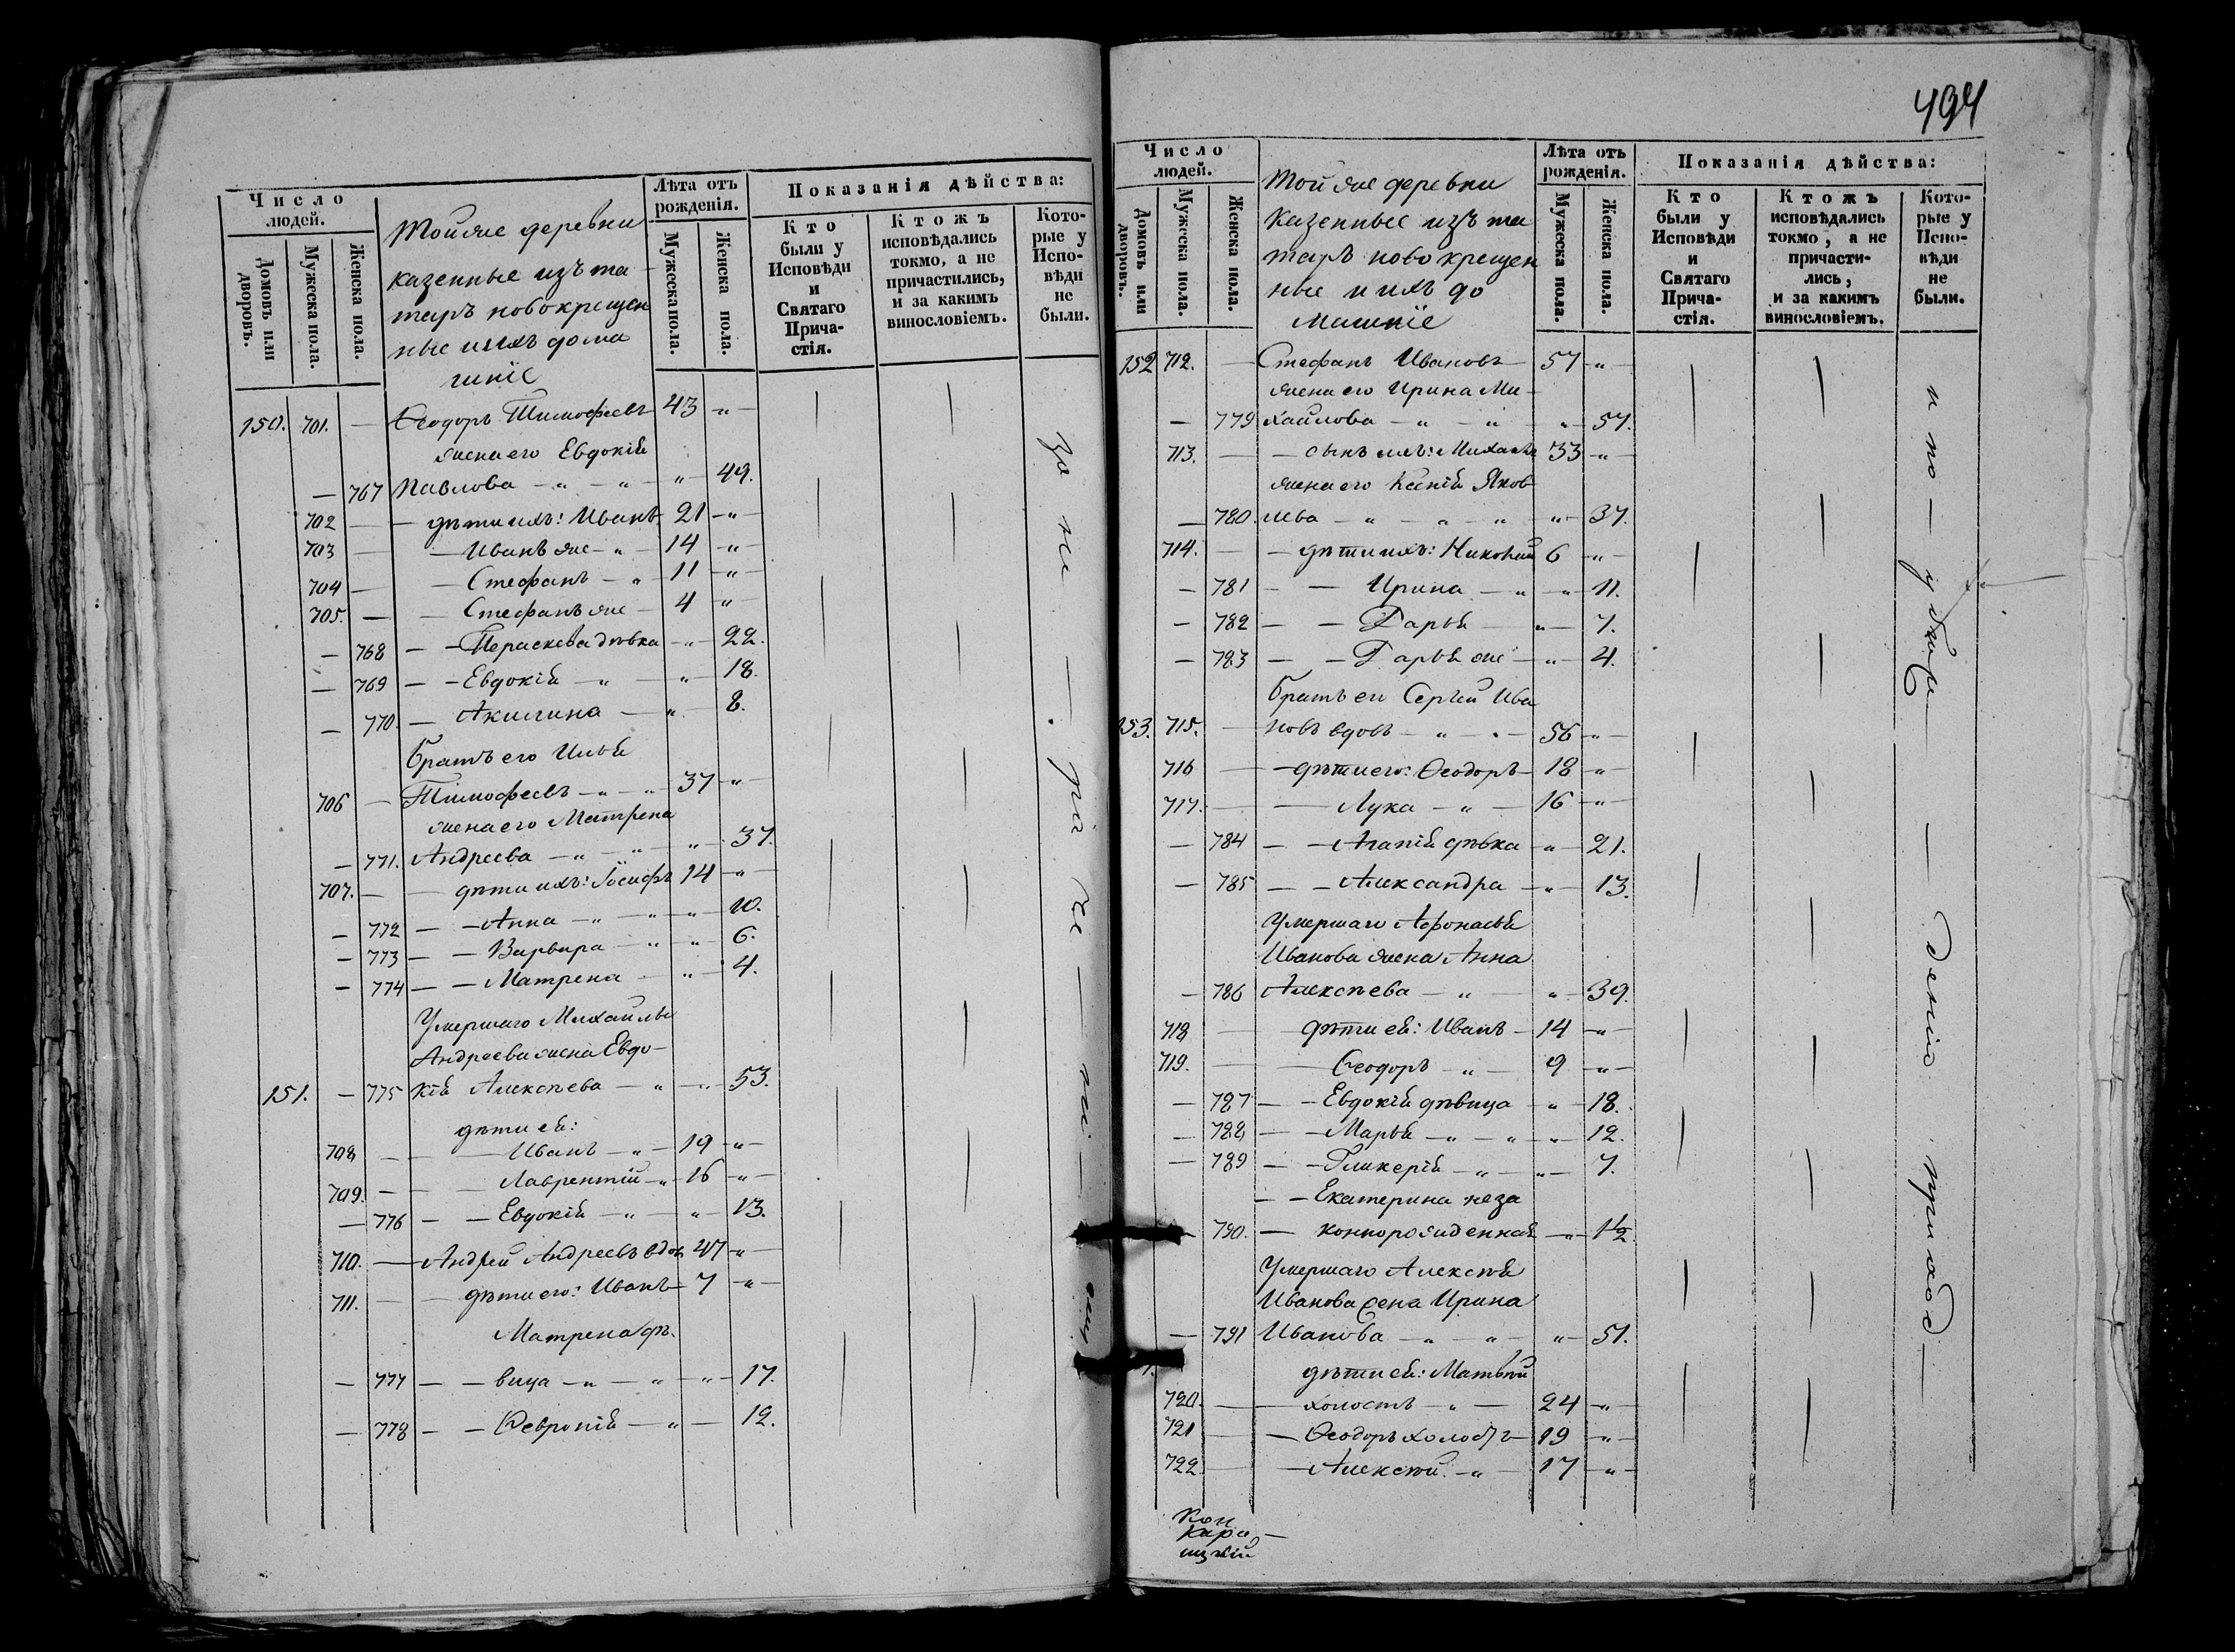 Число
людей.
Домовъ или
дворовъ.
Мужеска пола.
Женска пола.
Тойже деревни
казенные изъ та-
таръ новокрещен
ные и ихъ дома
шніе
Лѣта отъ
рожденія.
Мужеска пола.
Женска пола.
Показанія дѣйства:
Кто
были у
Исповѣди
и
Святаго
Прича-
стія.
Ктожъ
исповѣдались
токмо, а не
причастились,
и за какимъ
винословіемъ.
Кото-
рые у
Испо-
вѣди
не
были.
150. 701. — Ѳеодоръ Тимофеевъ 43 „
жена его Евдокія
— 767 Павлова — „ — „ — „ 49.
702 — — дѣти ихъ: Иванъ 21 „
703 — — Иванъ же — „ — 14 „
704 — — Стефанъ — „ 11 „
705. — — Стефанъ же — 4 „
— 768 — — Пераскева дѣвка „ 22.
— 769 — — Евдокія — „ — „ 18.
— 770. — Акилина — „ 8.
братъ его Илья
706 — Тимофеевъ — „ — „ 37 „
жена его Матрена
— 771. Андреева — „ — „ — „ 37.
707. — — дѣти ихъ: Іосифъ 14 „
— 772 — — Анна — „ — „ — „ 10.
— 773 — — Варвара — „ — „ 6.
— 774 — — Матрена — „ 4.
Умершаго Михаила
Андреева жена Евдо-
151. — 775 кія Алексѣева — „ — „ 53.
дѣти ея:
708 — — Иванъ — „ — 19 „
709. — — Лаврентій — „ 16 „
— 776 — — Евдокія — „ — „ 13.
710. — Андрей Андреевъ вдов 47 „
711. — — дѣти его: Иванъ 7 „
Матрена дѣ-
— 777 — — вица — „ — „ — „ 17.
— 778 — — Февронія — „ — 12.
494
Число
людей.
Домовъ или
дворовъ.
Мужеска пола.
Женска пола.
Той же деревни
казенные изъ та
таръ новокрещен
ные и ихъ до
машніе
Лѣта отъ
рожденія.
Мужеска пола.
Женска пола.
Показанія дѣйства:
Кто
были у
Исповѣди
и
Святаго
Прича-
стія.
Ктожъ
исповѣдались
токмо, а не
причасти-
лись,
и за какимъ
винословіемъ.
Кото-
рые у
Испо-
вѣди
не
были.
152 712. — Стефанъ Ивановъ — 57 „
жена его Ирина Ми-
— 779 хайлова — „ — „ — „ 57.
713. — — сынъ ихъ: Михаилъ 33 „
жена его Ксенія Яков
— 780. лева — „ — „ — „ — „ 37.
714. — — дѣти ихъ: Николай 6 „
— 781 — — Ирина — „ — „ 11.
— 782 — — Дарья — „ 7.
— 783 — — Дарья же — „ 4.
братъ его Сергій Ива
153. 715. — новъ вдовъ — „ — 56 „
716 — — дѣти его: Ѳеодоръ — 18 „
717. — — Лука — „ — 16 „
— 784 — — Агапія дѣвка — „ 21.
— 785 — — Александра — „ 13.
Умершаго Афонасья
Иванова жена Анна
— 786 Алексѣева — „ — „ 39.
718 — дѣти ея: Иванъ — 14 „
719. — — Ѳеодоръ — „ — 9 „
— 787 — — Евдокія дѣвица — „ 18.
— 788 — — Марья — „ — „ — „ 12.
— 789 — — Гликерія — „ — „ 7.
— — Екатерина неза
— 790. — коннорожденная — „ 1½
Умершаго Алексѣя
Иванова жена Ирина
— 791 Иванова — „ — „ — „ 51.
дѣти ея: Матвѣй
720. — холостъ — „ — 24 „
721 — — Ѳеодоръ холостъ — 19 „
722. — — Алексѣй — „ — 17 „